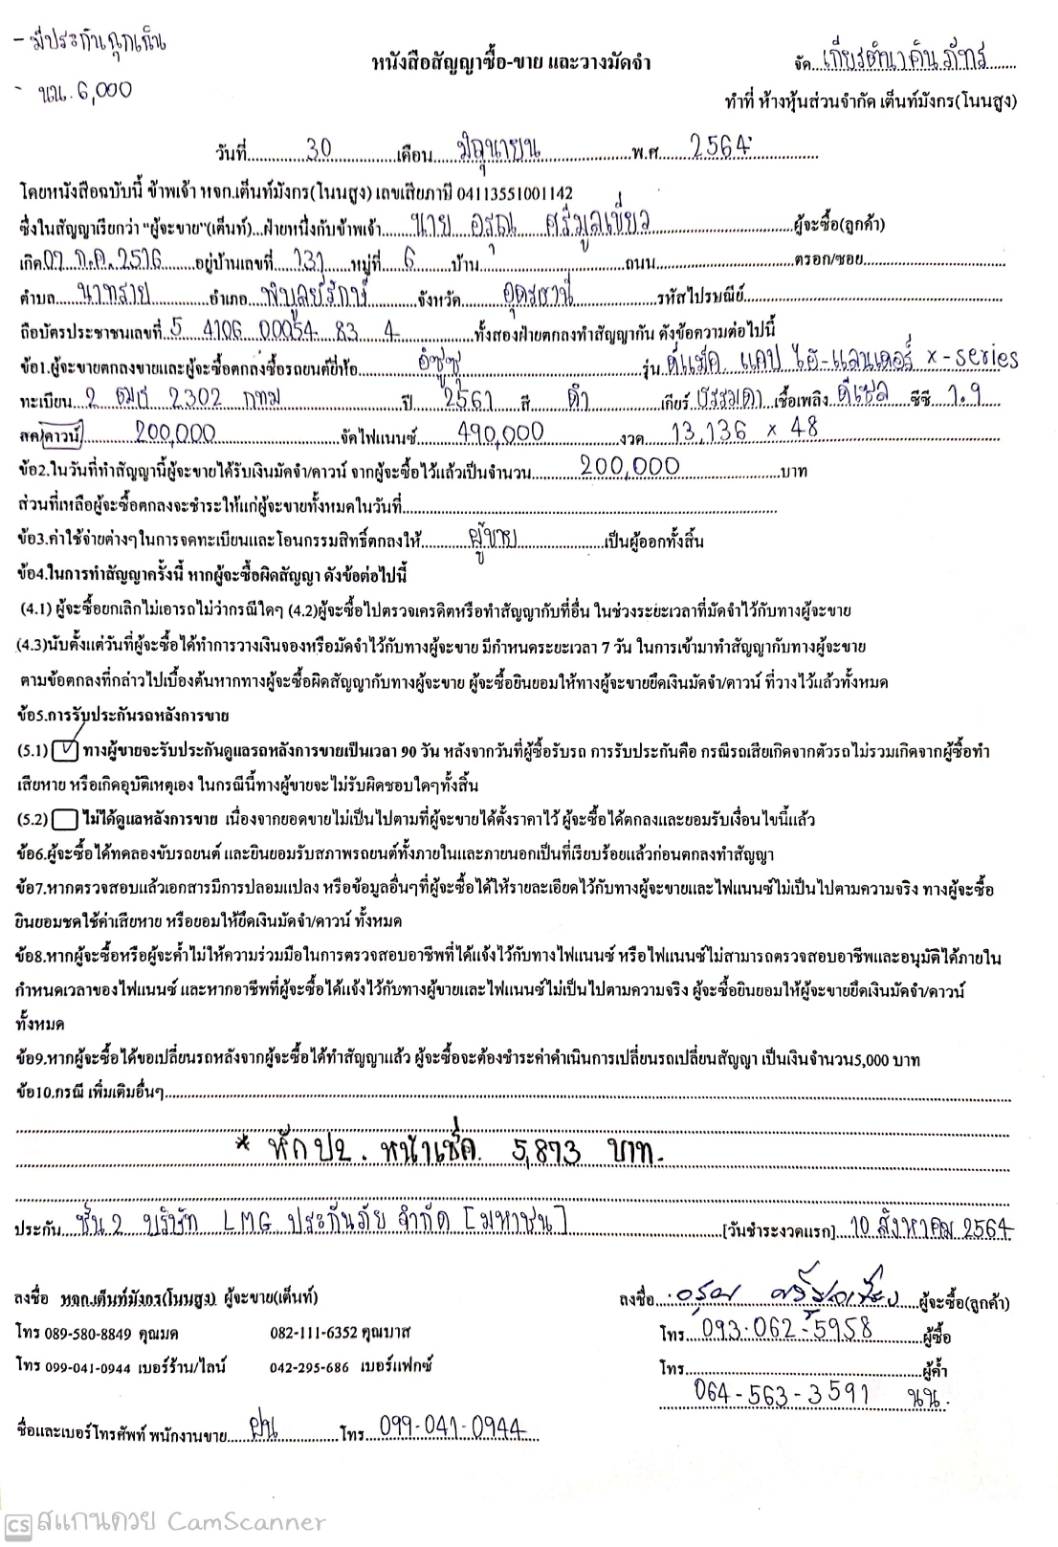 - มีประกันฉุกเฉิน
- นน. 6,000
หนังสือสัญญาซื้อ-ขาย และวางมัดจำ
จัด เกียรตินาคิน ภัทร
ทำที่ ห้างหุ้นส่วนจำกัด เต็นท์มังกร(โนนสูง)
วันที่ 30 เดือน มิถุนายน พ.ศ 2564
โดยหนังสือฉบับนี้ ข้าพเจ้า หจก.เต็นท์มังกร(โนนสูง) เลขเสียภาษี 04113551001142
ซึ่งในสัญญาเรียกว่า "ผู้จะขาย"(เต็นท์)...ฝ่ายหนึ่งกับข้าพเจ้า นาย อรุณ ศรีมูลเขียว ผู้จะซื้อ(ลูกค้า)
เกิด 07 ก.ค. 2516 อยู่บ้านเลขที่ 131 หมู่ที่ 6 บ้าน ถนน ตรอก/ซอย
ตำบล นาทราย อำเภอ พิบูลย์รักษ์ จังหวัด อุดรธานี รหัสไปรษณีย์
ถือบัตรประชาชนเลขที่ 5 4106 00054 83 4 ทั้งสองฝ่ายตกลงทำสัญญากัน ดังข้อความต่อไปนี้
ข้อ1.ผู้จะขายตกลงขายและผู้จะซื้อตกลงซื้อรถยนต์ยี่ห้อ อีซูซุ รุ่น ดีแม็ค แคป ไฮ-แลนเดอร์ x-series
ทะเบียน 2 ฒธ 2302 กทม ปี 2561 สี ดำ เกียร์ ธรรมดา เชื้อเพลิง ดีเซล ซีซี 1.9
สด/ดาวน์ 200,000 จัดไฟแนนซ์ 490,000 งวด 13,136 x 48
ข้อ2.ในวันที่ทำสัญญานี้ผู้จะขายได้รับเงินมัดจำ/ดาวน์ จากผู้จะซื้อไว้แล้วเป็นจำนวน 200,000 บาท
ส่วนที่เหลือผู้จะซื้อตกลงจะชำระให้แก่ผู้จะขายทั้งหมดในวันที่
ข้อ3.ค่าใช้จ่ายต่างๆในการจดทะเบียนและโอนกรรมสิทธิ์ตกลงให้ ผู้ขาย เป็นผู้ออกทั้งสิ้น
ข้อ4.ในการทำสัญญาครั้งนี้ หากผู้จะซื้อผิดสัญญา ดังข้อต่อไปนี้
(4.1) ผู้จะซื้อยกเลิกไม่เอารถไม่ว่ากรณีใดๆ (4.2)ผู้จะซื้อไปตรวจเครดิตหรือทำสัญญากับที่อื่น ในช่วงระยะเวลาที่มัดจำไว้กับทางผู้จะขาย
(4.3)นับตั้งแต่วันที่ผู้จะซื้อได้ทำการวางเงินจองหรือมัดจำไว้กับทางผู้จะขาย มีกำหนดระยะเวลา 7 วัน ในการเข้ามาทำสัญญากับทางผู้จะขาย
ตามข้อตกลงที่กล่าวไปเบื้องต้นหากทางผู้จะซื้อผิดสัญญากับทางผู้จะขาย ผู้จะซื้อยินยอมให้ทางผู้จะขายยึดเงินมัดจำ/ดาวน์ ที่วางไว้แล้วทั้งหมด
ข้อ5.การรับประกันรถหลังการขาย
(5.1) ทางผู้ขายจะรับประกันดูแลรถหลังการขายเป็นเวลา 90 วัน หลังจากวันที่ผู้ซื้อรับรถ การรับประกันคือ กรณีรถเสียเกิดจากตัวรถไม่รวมเกิดจากผู้ซื้อทำ
เสียหาย หรือเกิดอุบัติเหตุเอง ในกรณีนี้ทางผู้ขายจะไม่รับผิดชอบใดๆทั้งสิ้น
(5.2) ไม่ได้ดูแลหลังการขาย เนื่องจากยอดขายไม่เป็นไปตามที่ผู้จะขายได้ตั้งราคาไว้ ผู้จะซื้อได้ตกลงและยอมรับเงื่อนไขนี้แล้ว
ข้อ6.ผู้จะซื้อได้ทดลองขับรถยนต์ และยินยอมรับสภาพรถยนต์ทั้งภายในและภายนอกเป็นที่เรียบร้อยแล้วก่อนตกลงทำสัญญา
ข้อ7.หากตรวจสอบแล้วเอกสารมีการปลอมแปลง หรือข้อมูลอื่นๆที่ผู้จะซื้อได้ให้รายละเอียดไว้กับทางผู้จะขายและไฟแนนซ์ไม่เป็นไปตามความจริง ทางผู้จะซื้อ
ยินยอมชดใช้ค่าเสียหาย หรือยอมให้ยึดเงินมัดจำ/ดาวน์ ทั้งหมด
ข้อ8.หากผู้จะซื้อหรือผู้จะค้ำไม่ให้ความร่วมมือในการตรวจสอบอาชีพที่ได้แจ้งไว้กับทางไฟแนนซ์ หรือไฟแนนซ์ไม่สามารถตรวจสอบอาชีพและอนุมัติได้ภายใน
กำหนดเวลาของไฟแนนซ์ และหากอาชีพที่ผู้จะซื้อได้แจ้งไว้กับทางผู้ขายและไฟแนนซ์ไม่เป็นไปตามความจริง ผู้จะซื้อยินยอมให้ผู้จะขายยึดเงินมัดจำ/ดาวน์
ทั้งหมด
ข้อ9.หากผู้จะซื้อได้ขอเปลี่ยนรถหลังจากผู้จะซื้อได้ทำสัญญาแล้ว ผู้จะซื้อจะต้องชำระค่าดำเนินการเปลี่ยนรถเปลี่ยนสัญญา เป็นเงินจำนวน5,000 บาท
ข้อ10.กรณี เพิ่มเติมอื่นๆ
* หัก ป2. หน้าเช็ค. 5,873 บาท.
ประกัน ชั้น 2 บริษัท LMG ประกันภัย จำกัด [มหาชน] [วันชำระงวดแรก] 10 สิงหาคม 2564
ลงชื่อ หจก.เต็นท์มังกร(โนนสูง) ผู้จะขาย(เต็นท์)
ลงชื่อ อรุณ ศรีมูลเขียว ผู้จะซื้อ(ลูกค้า)
โทร 089-580-8849 คุณมด 082-111-6352 คุณบาส
โทร 093-062-5958 ผู้ซื้อ
โทร 099-041-0944 เบอร์ร้าน/ไลน์ 042-295-686 เบอร์แฟกซ์
โทร ผู้ค้ำ
064-563-3591 นน.
ชื่อและเบอร์โทรศัพท์ พนักงานขาย ฝน โทร 099-041-0944
CS สแกนด้วย CamScanner